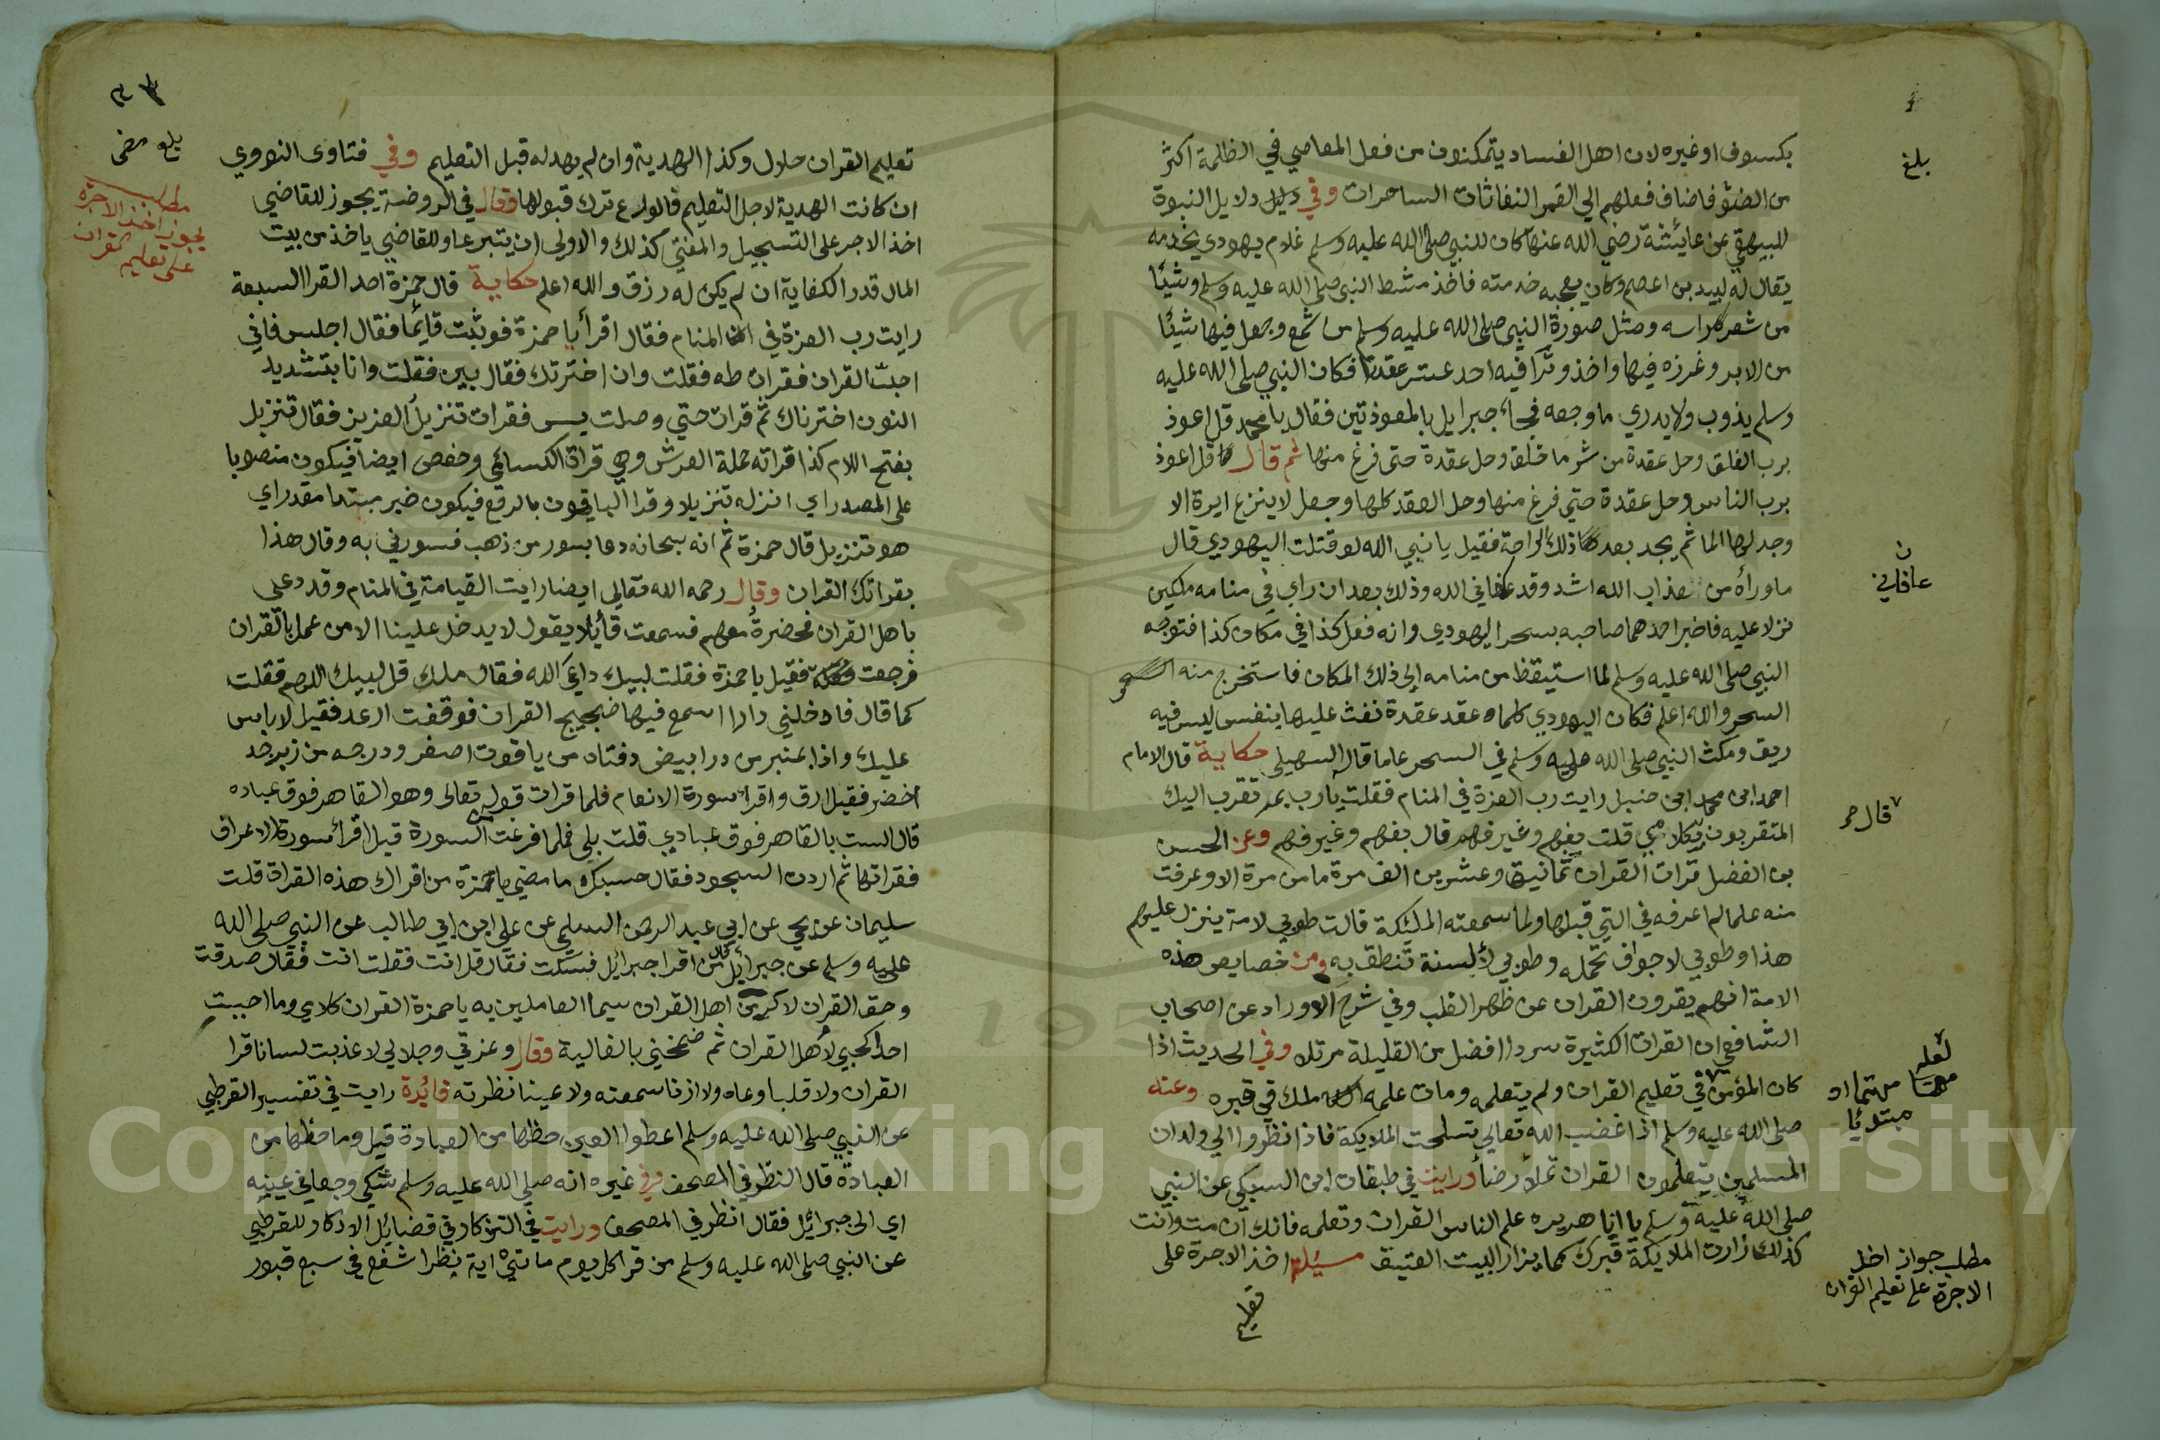 بلغ
بكسوف او غيره لان اهل الفساد يتمكنون من فعل المعاصي في الظلمة اكثر
من الضئو فاضاف فعلهم الي القمر النفاثات الساحرات وفي دلايل النبوة
للبيهقي عن عايشة رضي الله عنها كان للنبي صلى الله عليه وسلم غلام يهودي يخدمه
يقال له لبيد بن اعصم وكان يعجبه خدمته فاخذ مشط النبي صلى الله عليه وسلم وشيئا
من شعر راسه ومثل صورة النبي صلى الله عليه وسلم من شمع وجعل فيها شيئا
من الابر وغرزه فيها واخذ وترا فيه احد عشر عقدة فكان النبي صلى الله عليه
وسلم يذوب ولا يدري ما وجعه فجاء جبرايل بالمعوذتين فقال يا محمد قل اعوذ
برب الفلق وحل عقدة من شر ما خلق وحل عقدة حتى فرغ منها ثم قال قل اعوذ
برب الناس وحل عقدة حتي فرغ منها وحل العقد كلها وجعل لا ينزع ابرة الا
وجد لها الما ثم يجد بعد ذلك راحة فقيل يا نبي الله لو قتلت اليهودي قال
ما وراه من عذاب الله اشد وقد عافاني الله وذلك بعد ان راي في منامه ملكين
عافاني
نزلا عليه فاخبر احدهما صاحبه بسحر اليهودي وانه فعل كذا في مكان كذا فتوجه
النبي صلى الله عليه وسلم لما استيقظ من منامه الى ذلك المكان فاستخرج منه
السحر والله اعلم فكان اليهودي كلما عقد عقدة نفث عليها بنفس ليس فيه
ريق ومكث النبي صلى الله عليه وسلم في السحر عاما قال السهيلي حكاية قال الامام
احمد ابن محمد ابن حنبل رايت رب العزة في المنام فقلت يا رب بم تقرب اليك
المتقربون بكلامي قلت بفهم وغير فهم قال بفهم وغير فهم وعن الحسن
قال
بن الفضل قرات القران ثمانية وعشرين الف مرة ما من مرة الا وعرفت
منه علما لم اعرفه في التي قبلها ولما سمعته الملئكة قالت طوبي لامة ينزل عليهم
هذا وطوبي لاجواف تحمله وطوبي لالسنة تنطق به ومن خصايص هذه
الامة انهم يقرون القران عن ظهر القلب وفي شرح الاوراد عن اصحاب
الشافعي ان القراة الكثيرة سردا افضل من القليلة مرتلة وفي الحديث اذا
كان المؤمن في تعليم القران ولم يتعلمه ومات علمه ملك في قبره وعنه
صلى الله عليه وسلم اذا غضب الله تعالي تسلحت الملايكة فاذا نظروا الي ولدان
المسلمين يتعلمون القران تملأ رضا ورايت في طبقات ابن السبكي عن النبي
صلى الله عليه وسلم يا ابا هريره علم الناس القران وتعلمه فانك ان مت وانت
كذلك زارت الملايكة قبرك كما يزار البيت العتيق مسئلة اخذ الاجرة على
مطلب جواز اخذ
الاجرة على تعليم القران
تعليم
بلغ
مطلب
يجوز اخذ الاجرة
على تعليم القران
تعليم القران حلال وكذا الهدية وان لم يهد له قبل التعليم وفي فتاوى النووي
ان كانت الهدية لاجل التعليم فالورع ترك قبولها وقال في الروضة يجوز للقاضي
اخذ الاجر على التسجيل والمفتي كذلك والاولى ان يتبرعا وللقاضي ياخذ من بيت
المال قدر الكفاية ان لم يكن له رزق والله اعلم حكاية قال حمزة احد القرا السبعة
رايت رب العزة في المنام فقال اقرأ يا حمزة فوثبت قايما فقال اجلس فاني
احب القران فقرات طه فقلت وان اخترتك فقال بين فقلت وانا بتشديد
النون اخترناك ثم قرات حتي وصلت يس فقرات تنزيل العزيز فقال تنزيل
بفتح اللام كذا قراته حملة العرش وهي قراة الكسائي وحفص ايضا فيكون منصوبا
على المصدر اي انزله تنزيلا وقرا الباقون بالرفع فيكون خبر مبتدا مقدر اي
هو تنزيل قال حمزة ثم انه سبحانه دعا بسور من ذهب فسورني به وقال هذا
بقراتك القران وقال رحمه الله تعالي ايضا رايت القيامة في المنام وقد دعي
باهل القران فحضرة معهم فسمعت قائلا يقول لا يدخل علينا الا من عمل بالقران
فرجعت فقيل يا حمزة فقلت لبيك داعي الله فقال ملك قل لبيك اللهم فقلت
كما قال فادخلني دارا اسمع فيها ضجيج القران فوقفت ارعد فقيل لا باس
عليك واذا بمنبر من در ابيض دفتاه من ياقوت اصفر ودرجه من زبرجد
اخضر فقيل ارق واقرا سورة الانعام فلما قرات قوله تعالى وهو القاهر فوق عباده
قال الست بالقاهر فوق عبادي قلت بلي فلما فرغت السورة قيل اقرا سورة الاعراف
فقراتها ثم اردت السجود فقال حسبك ما مضي يا حمزة من اقراك هذه القراة قلت
سليمان عن يحي عن ابي عبد الرحمن السلمي عن علي ابن ابي طالب عن النبي صلى الله
عليه وسلم عن جبرائيل قال من اقرا جبرائيل فسكت فقال قل انت فقلت انت فقال صدقت
وحق القران لاكرمن اهل القران سيما العاملين به يا حمزة القران كلامي وما احببت
احدا كحبي لأهل القران ثم ضمخني بالغالية وقال وعزتي وجلالي لا عذبت لسانا قرا
القران ولا قلبا وعاه ولا اذنا سمعته ولا عينا نظرته فايدة رايت في تفسير القرطبي
عن النبي صلى الله عليه وسلم اعطوا العين حظها من العبادة قيل وما حظها من
العبادة قال النظر في المصحف وفي غيره انه صلى الله عليه وسلم شكي وجعا في عينه
اي الى جبرائيل فقال انظر في المصحف ورايت في التذكار في فضايل الاذكار للقرطبي
عن النبي صلى الله عليه وسلم من قرا كل يوم مائتي اية نظرا شفع في سبع قبور
Copyright © King Saud University
1957